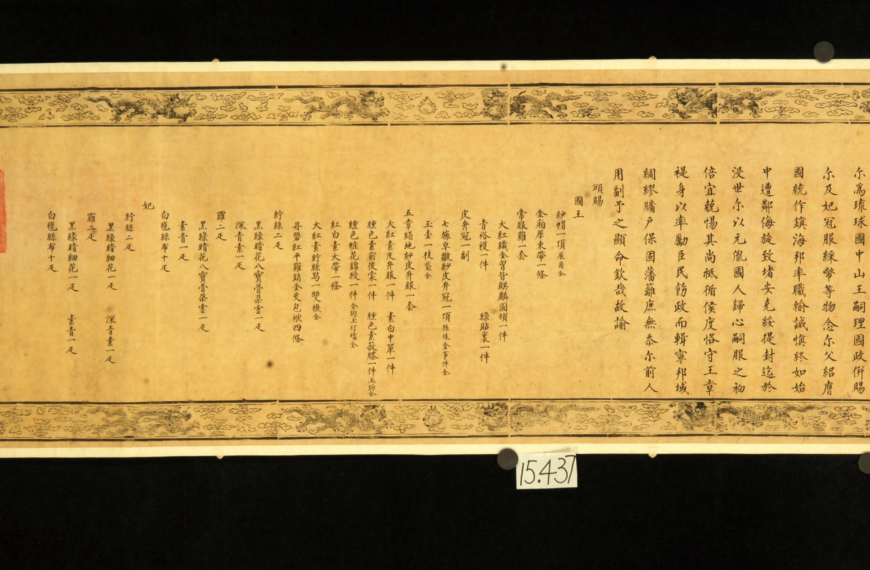 尔為琉球國中山王嗣理國政併賜
尔及妃冠服綵幣等物念尔父紹膺
國統作鎮海邦率職輸誠慎終如始
中遭鄰海旋致堵安克綏提封迄於
沒世尔以元胤國人歸心嗣服之初
倍宜兢惕其尚祗循侯度恪守王章
禔身以率勵臣民飭政而輯寧邦域
綢繆牖戶保固藩蘺庶無忝尔前人
用副予之顯命欽哉故諭
頒賜
國王
紗帽一頂展角全
金廂犀束帶一條
常服羅一套
大紅織金胷背麒麟圓領一件
青褡𧞤一件 綠貼裏一件
皮弁冠一副
七旒皁皺紗皮弁冠一頂旒珠金事件全
玉圭一枝袋全
五章絹地紗皮弁服一套
大紅素皮弁服一件 素白中單一件
纁色素前後裳一件 纁色素蔽膝一件玉鈎全
纁色粧花錦綬一件金鈎玉玎璫全
紅白素大帶一條
大紅素紵絲舄一雙襪全
丹礬紅平羅銷金夾包袱四條
紵絲二疋
黑綠暗花八寶骨朶雲一疋
深青素一疋
羅二疋
黑綠暗花八寶骨朶雲一疋
素青一疋
白氁絲布十疋
妃
紵絲二疋
黑綠暗細花一疋 深青素一疋
羅二疋
黑綠暗細花一疋 素青一疋
白氁絲布十疋
15.437